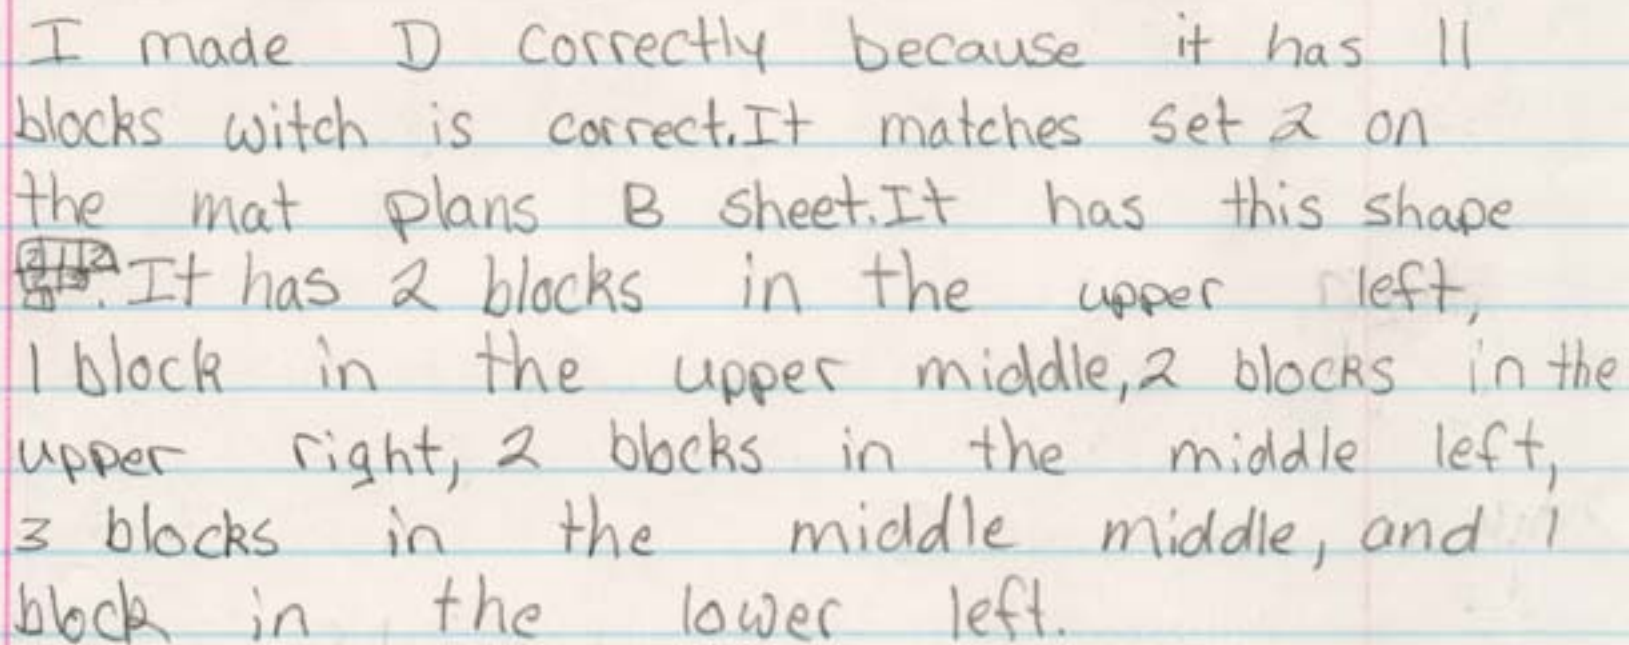 I made D correctly because it has 11
blocks witch is correct.It matches set 2 on
the mat plans B sheet.It has this shape
2 1 2 2 3 1. It has 2 blocks in the upper left,
1 block in the upper middle, 2 blocks in the
upper right, 2 blocks in the middle left,
3 blocks in the middle middle, and 1
block in the lower left.